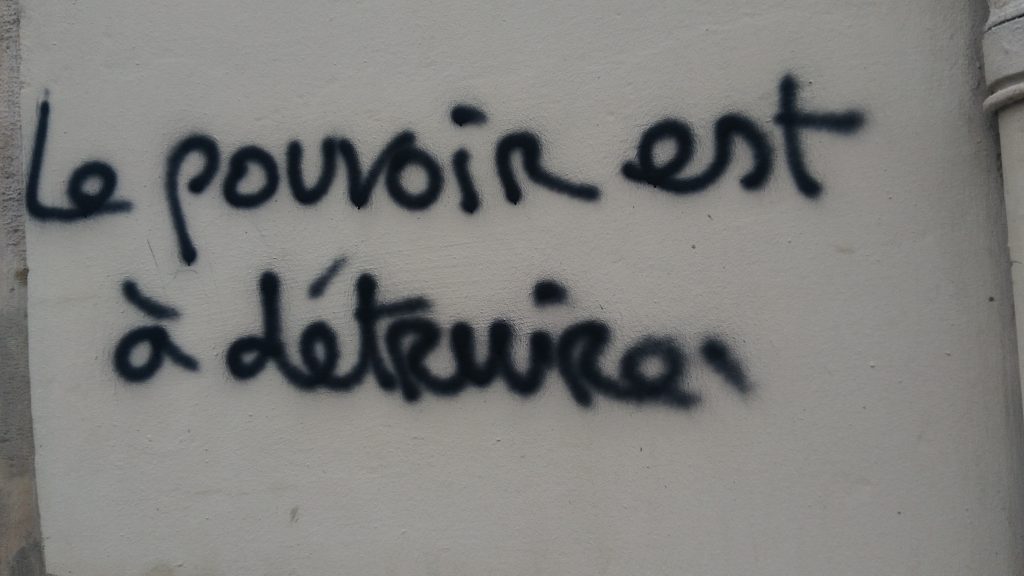 Le pouvoir est
à détruire.